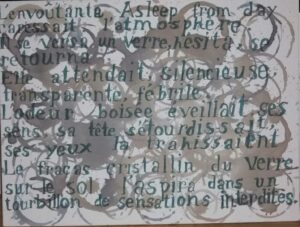 L'envoûtante, Asleep from day
caressait l'atmosphère
Il se versa un verre, hésita, se
retourna.
Elle attendait, silencieuse,
transparente, fébrile.
L'odeur boisée éveillait ces
sens, sa tête s'étourdissait
ses yeux la trahissaient
Le fracas cristallin du verre
sur le sol l'aspira dans un
tourbillon de sensations interdites.